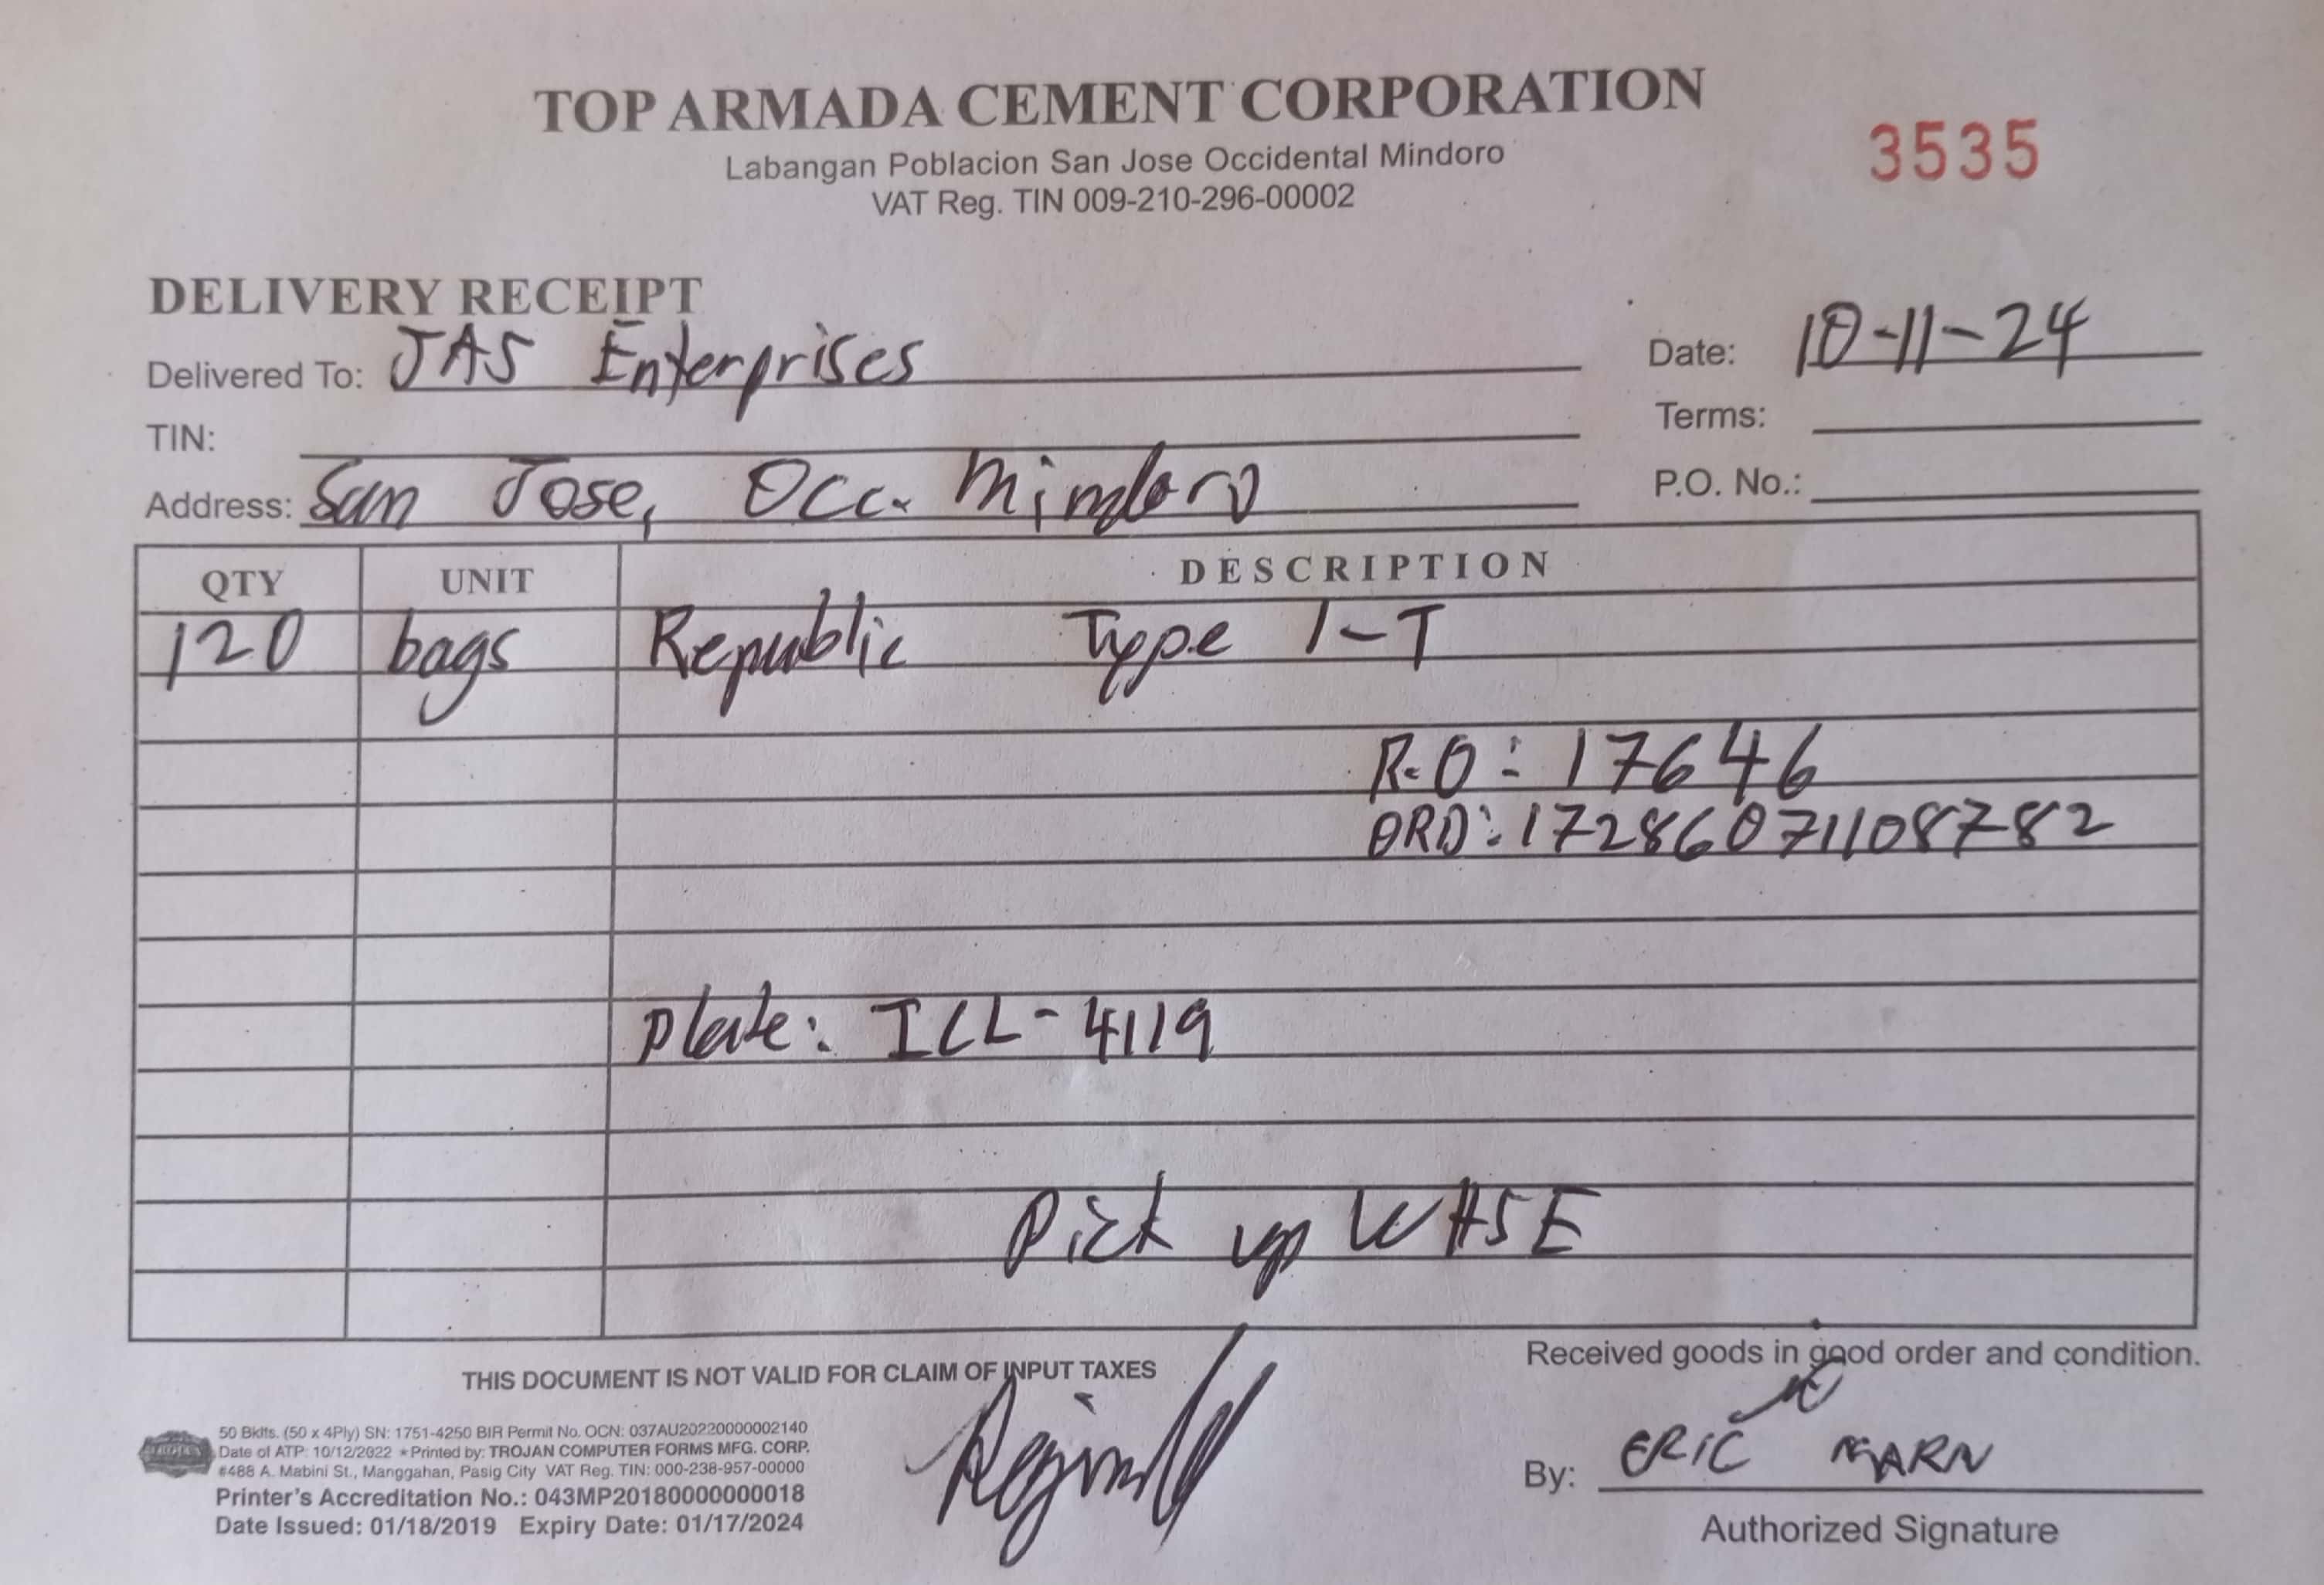 TOP ARMADA CEMENT CORPORATION
Labangan Poblacion San Jose Occidental Mindoro
VAT Reg. TIN 009-210-296-00002
3535
DELIVERY RECEIPT
Delivered To: JAS Enterprises
Date: 10-11-24
TIN:
Terms:
Address: San Jose, Occ. Mindoro
P.O. No.:
QTY UNIT DESCRIPTION
120 bags Republic Type 1-T
R.O: 17646
ORD: 1728607110 8782
Plate: ICL-4119
Pick up WHSE
THIS DOCUMENT IS NOT VALID FOR CLAIM OF INPUT TAXES
Received goods in good order and condition.
50 Bklts. (50 x 4Ply) SN: 1751-4250 BIR Permit No. OCN: 037AU20220000002140
Date of ATP: 10/12/2022 ★Printed by: TROJAN COMPUTER FORMS MFG. CORP.
#488 A. Mabini St., Manggahan, Pasig City VAT Reg. TIN: 000-238-957-00000
Printer's Accreditation No.: 043MP20180000000018
Date Issued: 01/18/2019 Expiry Date: 01/17/2024
By: ERIC MARN
Authorized Signature